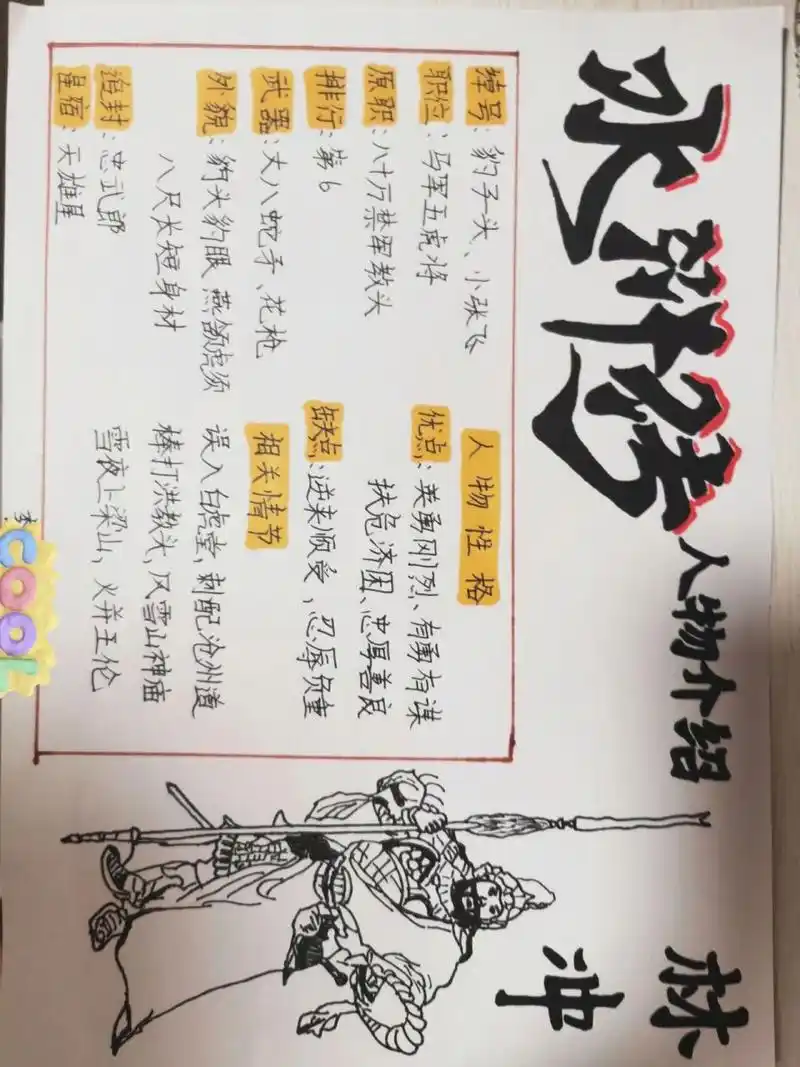 水浒传人物介绍
林冲
绰号：豹子头、小张飞
职位：马军五虎将
原职：八十万禁军教头
排行：第6
武器：丈八蛇矛、花枪
外貌：豹头豹眼 燕颔虎须
八尺长短身材
追封：忠武郎
星宿：天雄星
人物性格
优点：英勇刚烈、有勇有谋
扶危济困、忠厚善良
缺点：逆来顺受，忍辱负重
相关情节
误入白虎堂，刺配沧州道
棒打洪教头，风雪山神庙
雪夜上梁山，火并王伦
COOL